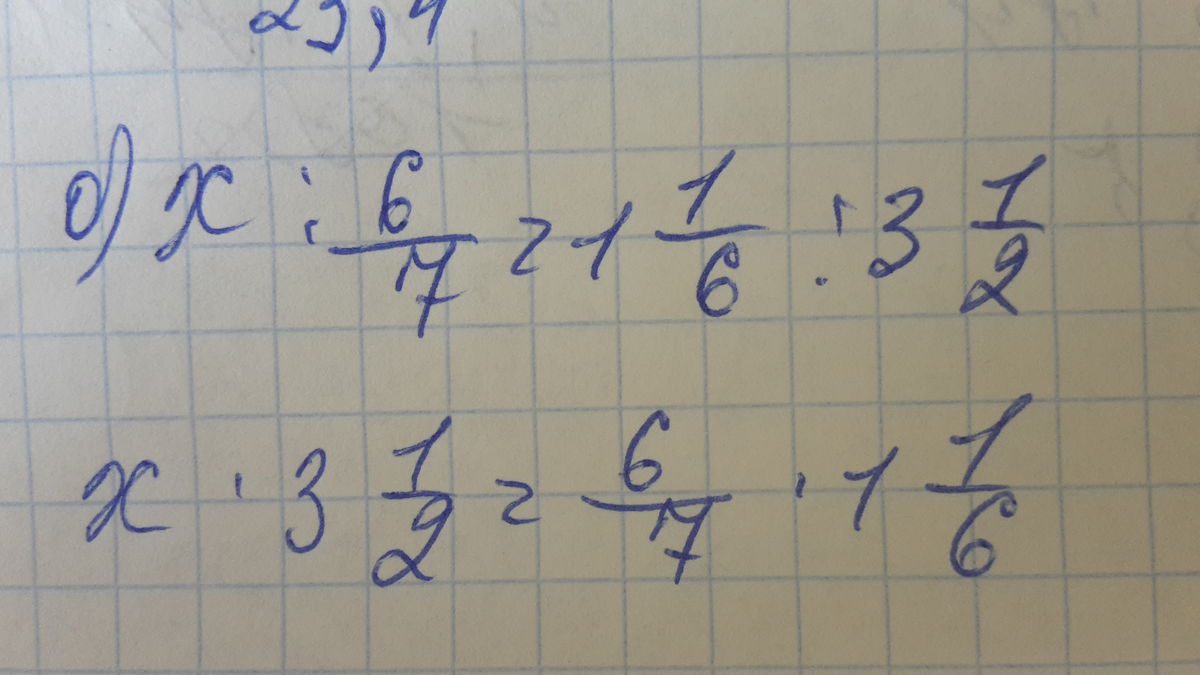 б) x : 6/7 = 1 1/6 : 3 1/2
x · 3 1/2 = 6/7 · 1 1/6